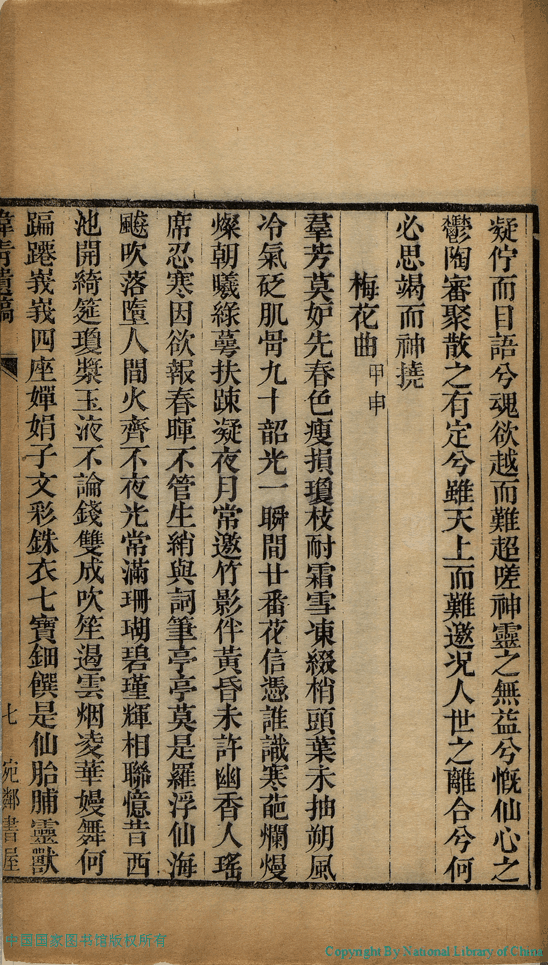 凝佇而目語兮魂欲越而難超嗟神靈之無益兮慨仙心之
鬱陶審聚散之有定兮雖天上而難邀况人世之離合兮何
必思竭而神撓
梅花曲甲申
羣芳莫妒先春色瘦損瓊枝耐霜雪凍綴梢頭葉未抽朔風
冷氣砭肌骨九十韶光一瞬間廿番花信憑誰識寒葩爛熳
燦朝曦綠萼扶踈凝夜月常邀竹影伴黃昏未許幽香人瑤
席忍寒因欲報春暉不管生綃與詞筆亭亭莫是羅浮仙海
颷吹落墮人間火齊不夜光常滿珊瑚碧瑾輝相聯憶昔西
池開綺筵瓊漿玉液不論錢雙成吹笙遏雲烟凌華嫚舞何
蹁蹮峩峩四座嬋娟子文彩銖衣七寶鈿饌是仙胎脯靈獸
緯青遺稿
七
宛鄰書屋
中国国家图书馆版权所有
Copyright By National Library of China